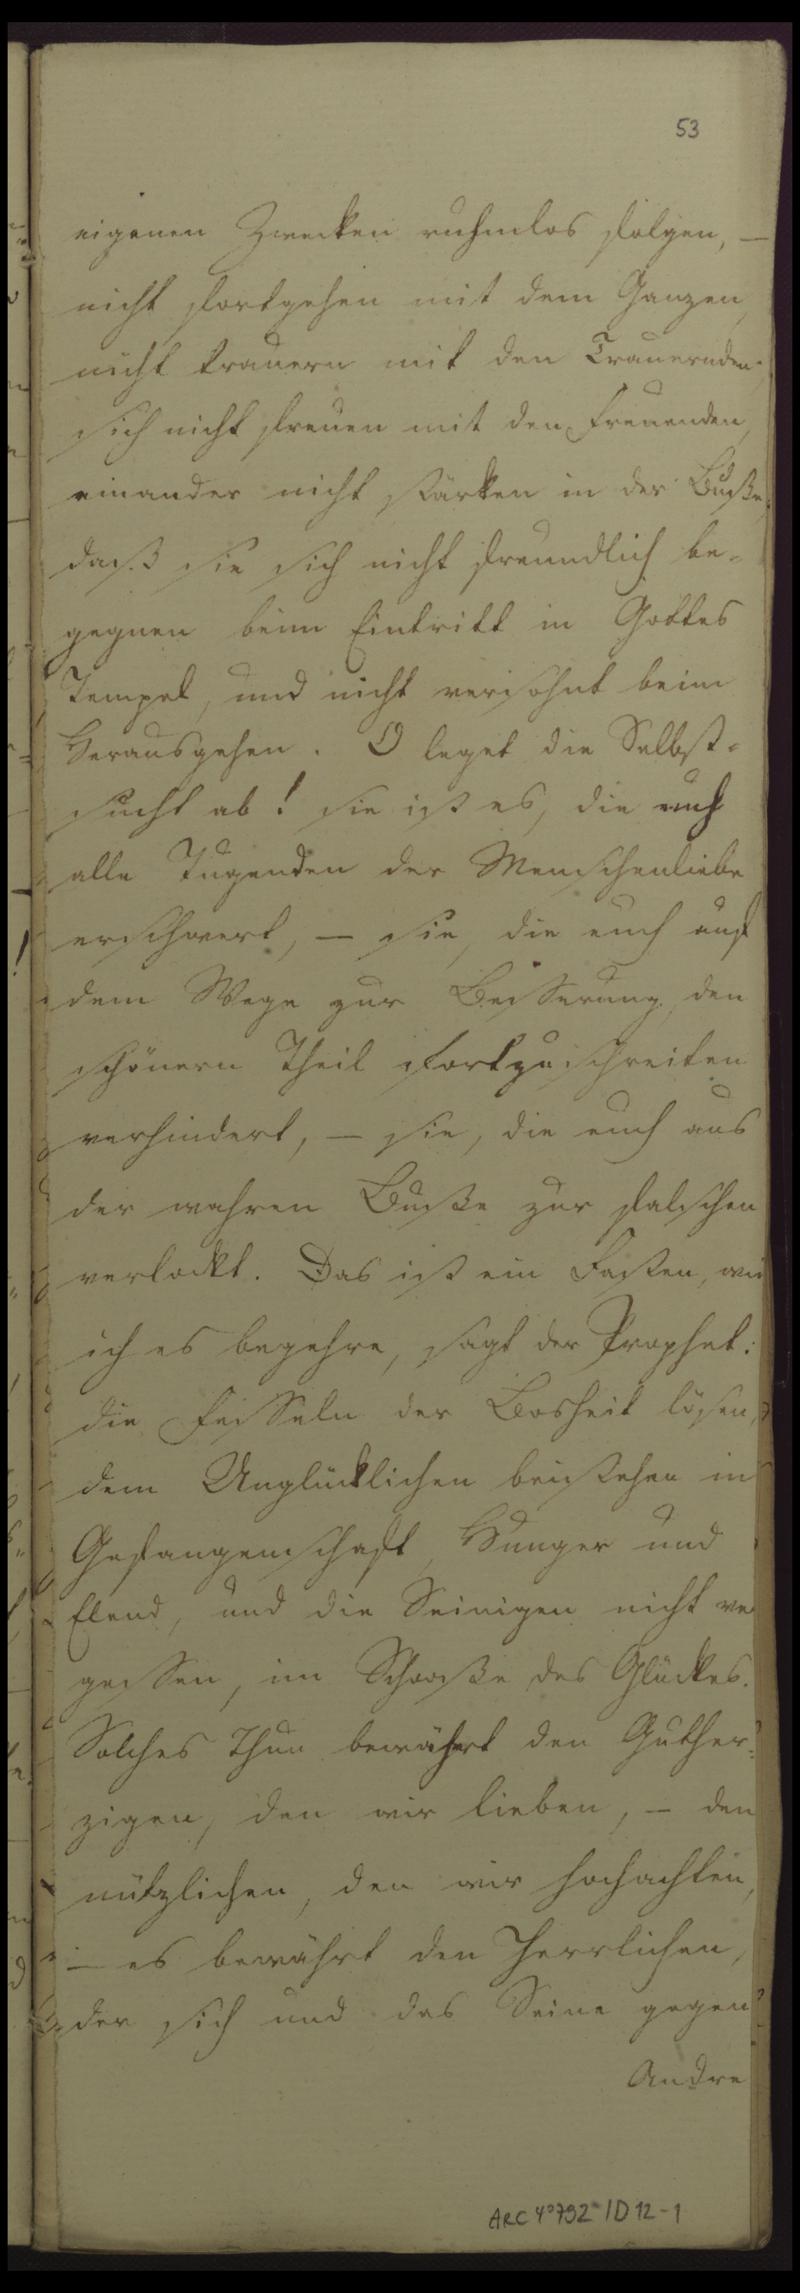 53
eigenen Zwecken ruhmlos folgen, —
nicht fortgehen mit dem Ganzen,
nicht trauern mit den Trauernden,
sich nicht freuen mit den Freuenden,
einander nicht stärken in der Buße,
daß sie sich nicht freundlich be-
gegnen beim Eintritt in Gottes
Tempel, und nicht versöhnt beim
Herausgehen. O leget die Selbst-
sucht ab! sie ist es, die euch
alle Tugenden der Menschenliebe
erschwert, — sie, die euch auf
dem Wege zur Besserung den
schönern Theil fortzuschreiten
verhindert, — sie, die euch aus
der wahren Buße zur falschen
verlockt. Das ist ein Fasten, wie
ich es begehre, sagt der Prophet:
die Fesseln der Bosheit lösen,
dem Unglücklichen beistehen in
Gefangenschaft, Hunger und
Elend, und die Seinigen nicht ver
gessen, im Schooße des Glückes.
Solches Thun bewährt den Guther-
zigen, den wir lieben, — den
nützlichen, den wir hochachten,
— es bewährt den Herrlichen,
der sich und das Seine gegen
Andre
ARC 4°792/D12-1